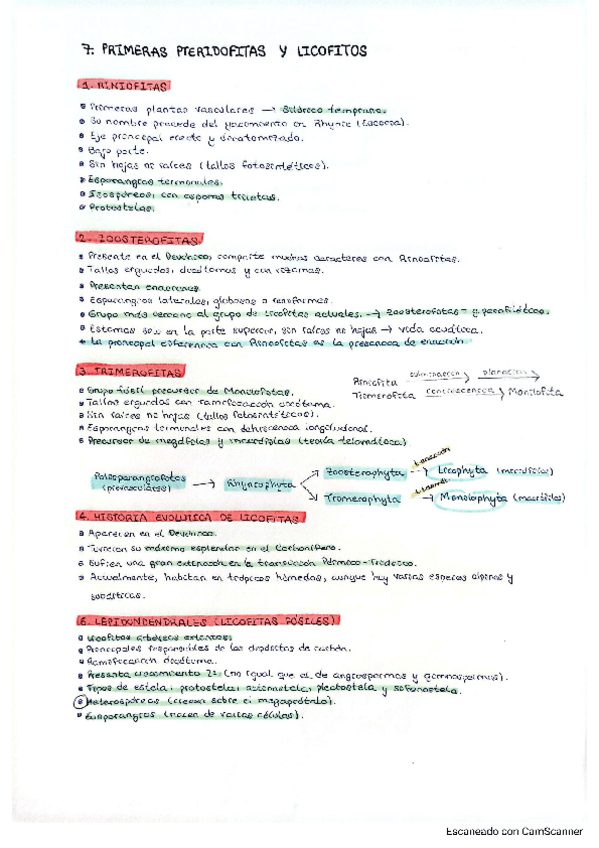 7. PRIMERAS PTERIDOFITAS Y LICOFITOS
1. RINIOFITAS
Primeras plantas vasculares → Silúrico temprano.
Su nombre procede del yacimiento en Rhynie (Escocia).
Eje principal erecto y dicotomizado.
Bajo porte.
Sin hojas ni raíces (tallos fotosintéticos).
Esporangios terminales.
Isospóreos, con esporas triletas.
Protostelas.
2. ZOOSTEROFITAS
Presente en el Devónico, comparte muchos caracteres con Riniofitas.
Tallos erguidos, dicótomos y con rizomas.
Presentan enaciones.
Esporangios laterales, globosos o reniformes.
Grupo más cercano al grupo de licofitas actuales. → Zoosterofitas = parafilético.
Estomas solo en la parte superior, sin raíces ni hojas → vida acuática.
La principal diferencia con Riniofitas es la presencia de enación
3. TRIMEROFITAS
Grupo fósil precursor de Monilofitas.
Tallos erguidos con ramificación dicótoma.
Sin raíces ni hojas (tallos fotosintéticos).
Esporangios terminales con dehiscencia longitudinal.
Precursor de megáfilas y micrófilas (teoría telomática)
Riniofita culminación → planación →
Trimerofita concrescencia → Monilofita
Paleosporangiofotos (prevasculares) → Rhyniophyta → Zoosterophyta → Licophyta (micrófilas)
→ Trimerophyta → Monilophyta (macrófilas)
4. HISTORIA EVOLUTIVA DE LICOFITAS
Aparecen en el Devónico.
Tuvieron su máximo esplendor en el Carbonífero.
Sufren una gran extinción en la transición Pérmico-Triásico.
Actualmente, habitan en trópicos húmedos, aunque hay varias especies alpinas y
6. LEPIDONDENDRALES (LICOFITAS FÓSILES)
Licofitos arbóreos extintos.
Principales responsables de los depósitos de carbón.
Ramificación dicótoma.
Presenta crecimiento 2º (no igual que el de angiospermas y gimnospermas).
Tipos de estela: protostela, actinostela, plectostela y sifonostela.
Heterospóreas (crecen sobre el megaprótalo).
Eusporangios (nacen de varias células).
Escaneado con CamScanner